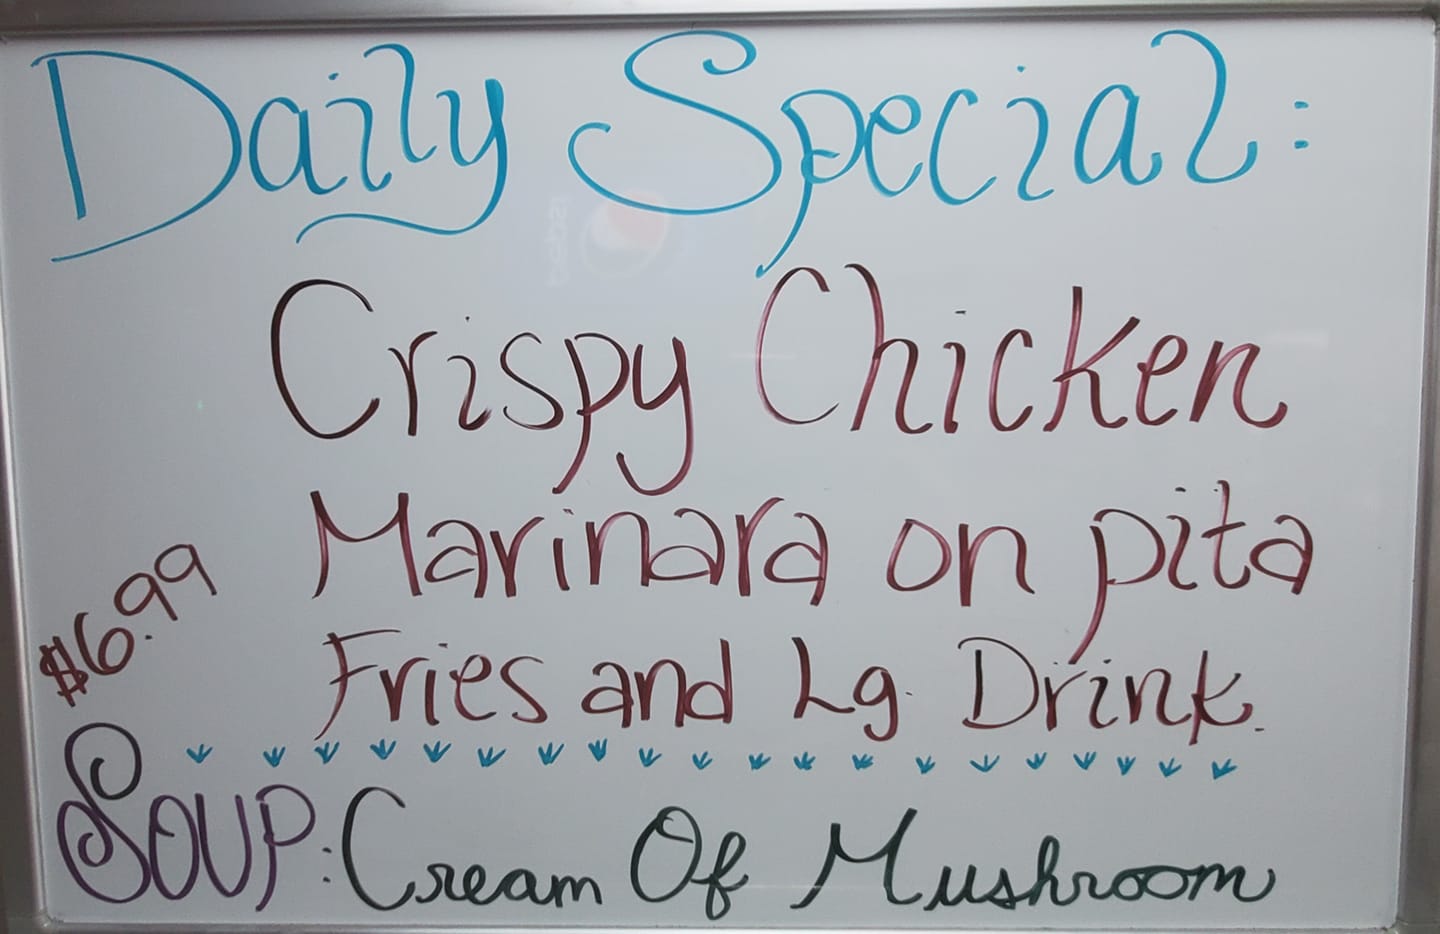 Daily Special:
Crispy Chicken
Marinara on pita
$6.99
Fries and Lg. Drink.
Soup: Cream Of Mushroom